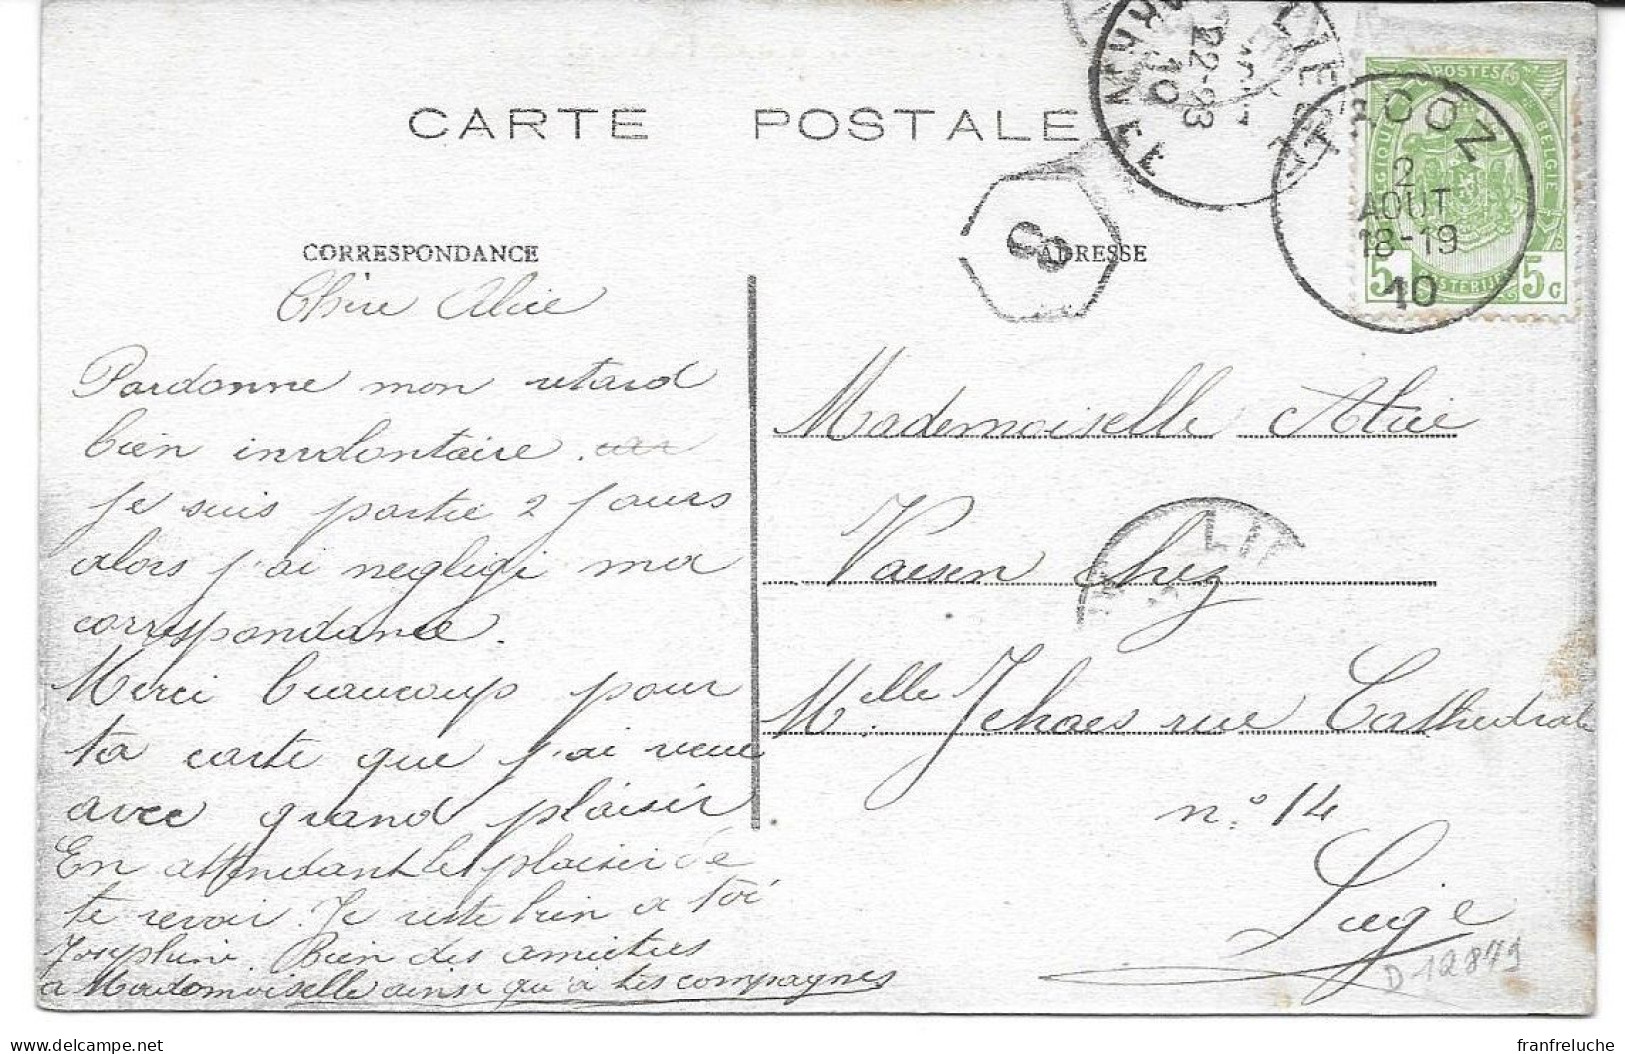 CARTE POSTALE
CORRESPONDANCE
Chère Alice
Pardonne mon retard
bien involontaire. car
je suis partie 2 jours
alors j'ai negligé ma
correspondance.
Merci beaucoup pour
ta carte que j'ai reçue
avec grand plaisir
En attendant le plaisir de
te revoir. Je reste bien a toi
Joséphine. Bien des amitiés
a Mademoiselle ainsi qu'a tes compagnes
ADRESSE
Mademoiselle Alice
Vaesen chez
Melle Jehaes rue Cathedrale
n° 14
Liége
D 12879
8
LIEGE
22-23
10
TROOZ
2
AOUT
18-19
10
POSTES
BELGIQUE
BELGIE
5 5c
LIE
franfreluche